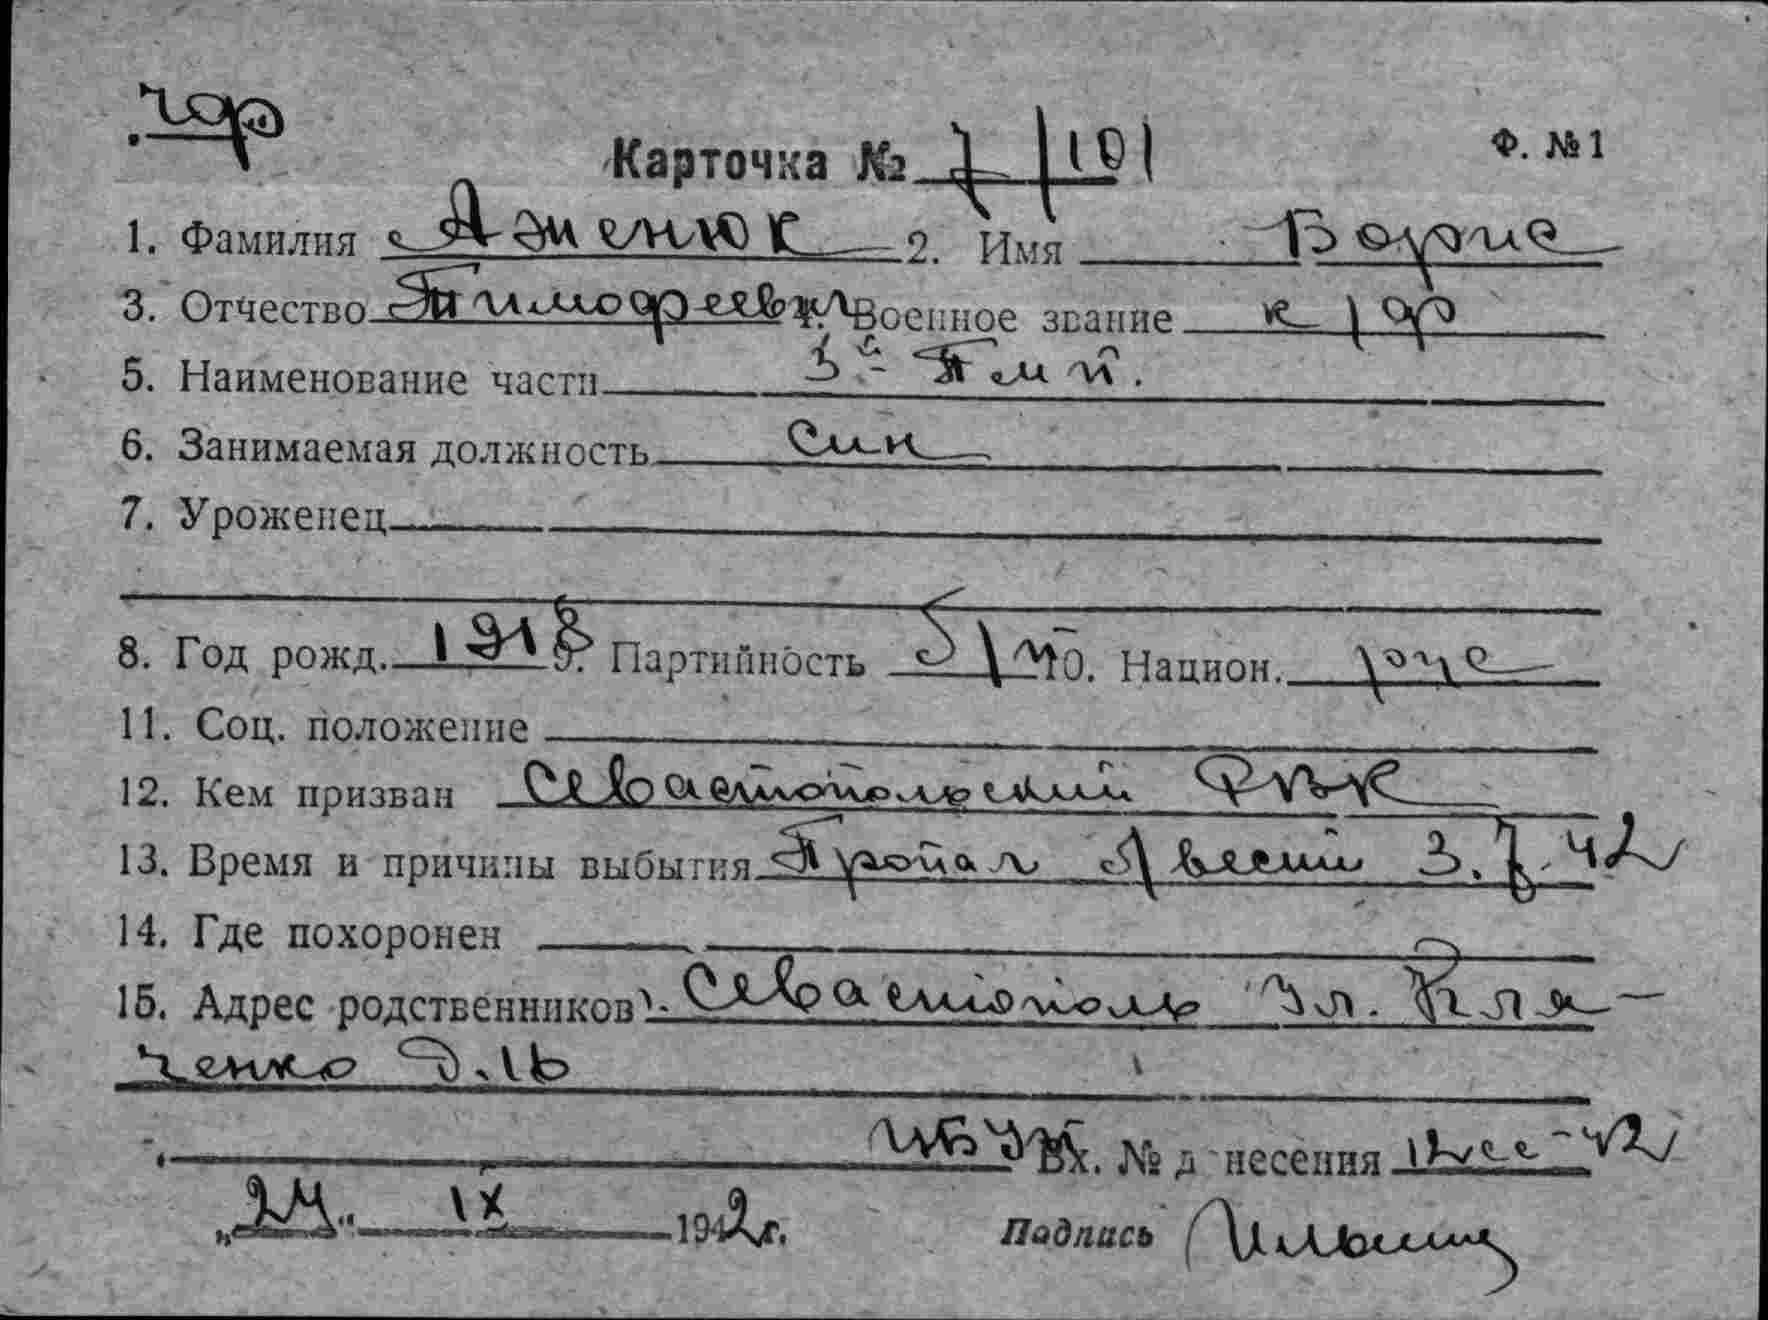 чф
Карточка № 7/101 Ф. № 1
1. Фамилия Аженюк 2. Имя Борис
3. Отчество Тимофеевич 4. Военное звание к/ф
5. Наименование части 3й - П м п.
6. Занимаемая должность
7. Уроженец
8. Год рожд. 1918 9. Партийность б/п 10. Национ. рус
11. Соц. положение
12. Кем призван Севастопольский РВК
13. Время и причины выбытия Пропал б/вести 3.7.42
14. Где похоронен
15. Адрес родственников г. Севастополь ул. Кля-
ченко Д. 16
Вх. № донесения 12сс-42
„24“ IX 1942 г. Подпись